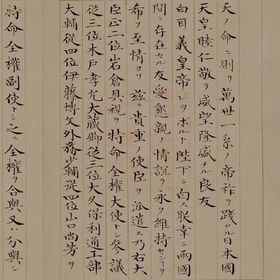 天ノ命ニ則リ萬世一系ノ帝祚ヲ踐ル日本國
天皇睦仁敬テ威望隆盛ナル良友
白耳義皇帝レヲポルト陛下ニ白ス朕幸ニ兩國
間ニ存在セル友愛懇親ノ情誼ヲ永ク維持センヿヲ
希フ至情ヨリ茲ニ貴重ノ使臣ヲ派遣シ乃右大
臣正二位岩倉具視ヲ特命全權大使トシ參議
從三位木戸孝允大藏卿從三位大久保利通工部
大輔從四位伊藤博文外務少輔從四位山口尚芳ヲ
特命全權副使トシ之ニ全權ヲ合與シ又ハ分與シ